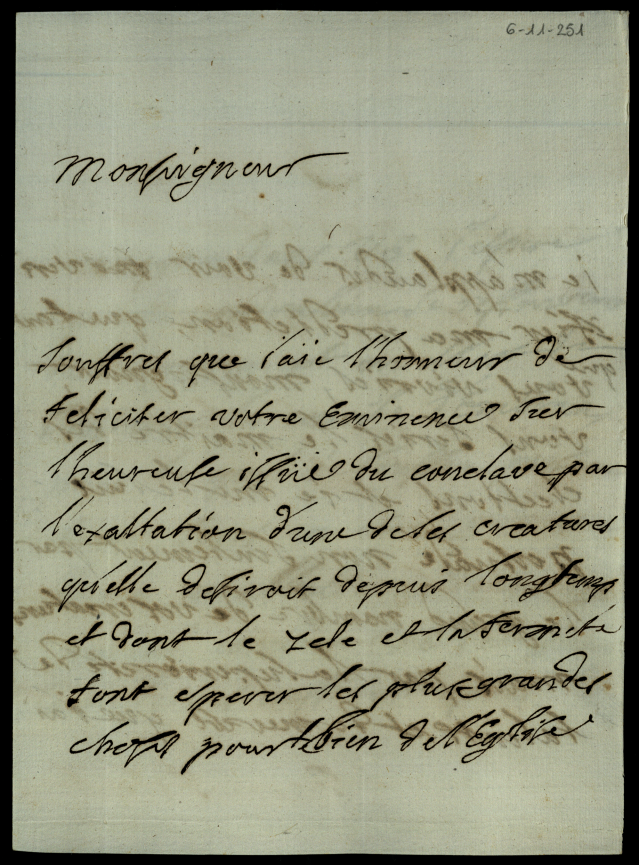 6-11-251
Monseigneur
souffres que i'aïe l'honneur de
feliciter votre Eminence sur
l'heureuse issüe du conclave par
l'exaltation d'une de ses creatures
qu'elle desiroit depuis longtemps
et dont le zele et la fermeté
font esperer les plus grandes
choses pour le bien de l'Eglise